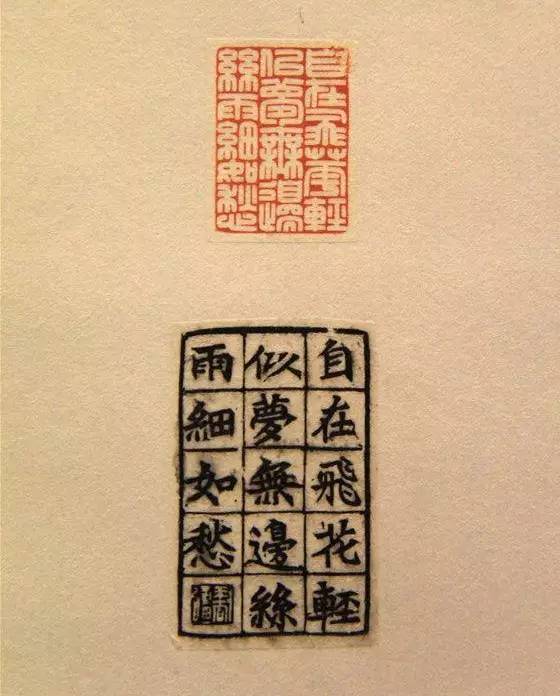 自在飛華輕
似夢無邊
絲雨細如愁
自在飛花輕
似夢無邊絲
雨細如愁